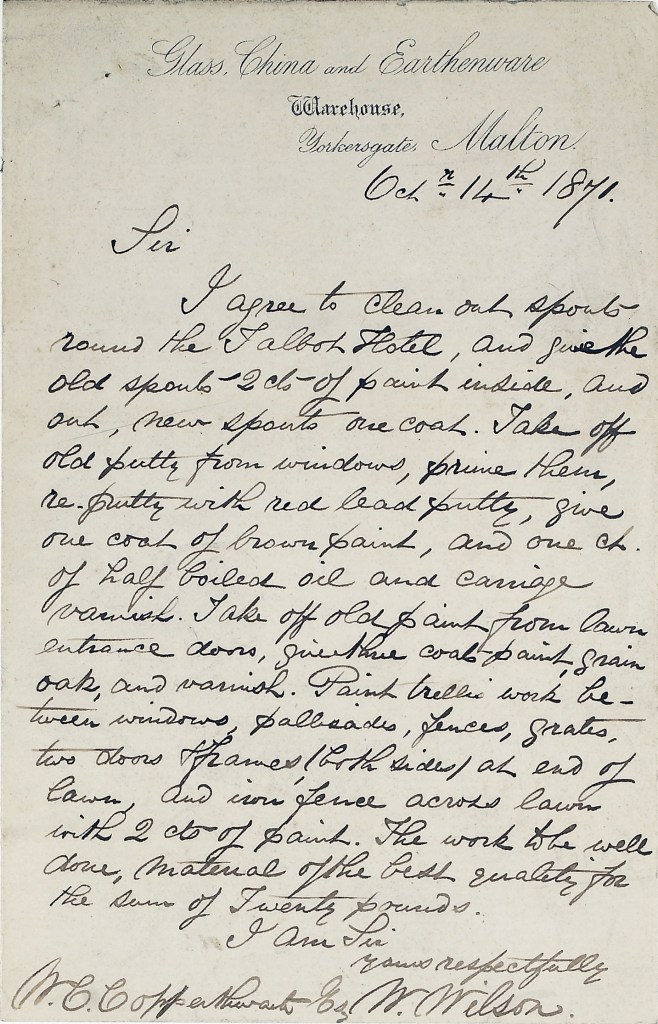 Glass, China and Earthenware
Warehouse,
Yorkersgate, Malton.
Octr 14th 1871.
Sir
I agree to clean out spouts
round the Talbot Hotel, and give the
old spouts 2 cts of paint inside, and
out, new spouts one coat. Take off
old putty from windows, prime them,
re-putty with red lead putty, give
one coat of brown paint, and one ct.
of half boiled oil and carriage
varnish. Take off old paint from lawn
entrance doors, give three coats paint, grain
oak, and varnish. Paint trellis work be-
tween windows, pallisades, fences, grates,
two doors & frames, (both sides) at end of
lawn, and iron fence across lawn
with 2 cts of paint. The work to be well
done, material of the best quality for
the sum of Twenty pounds.
I Am Sir
yours respectfully
W. C. Copperthwaite Esq W. Wilson.